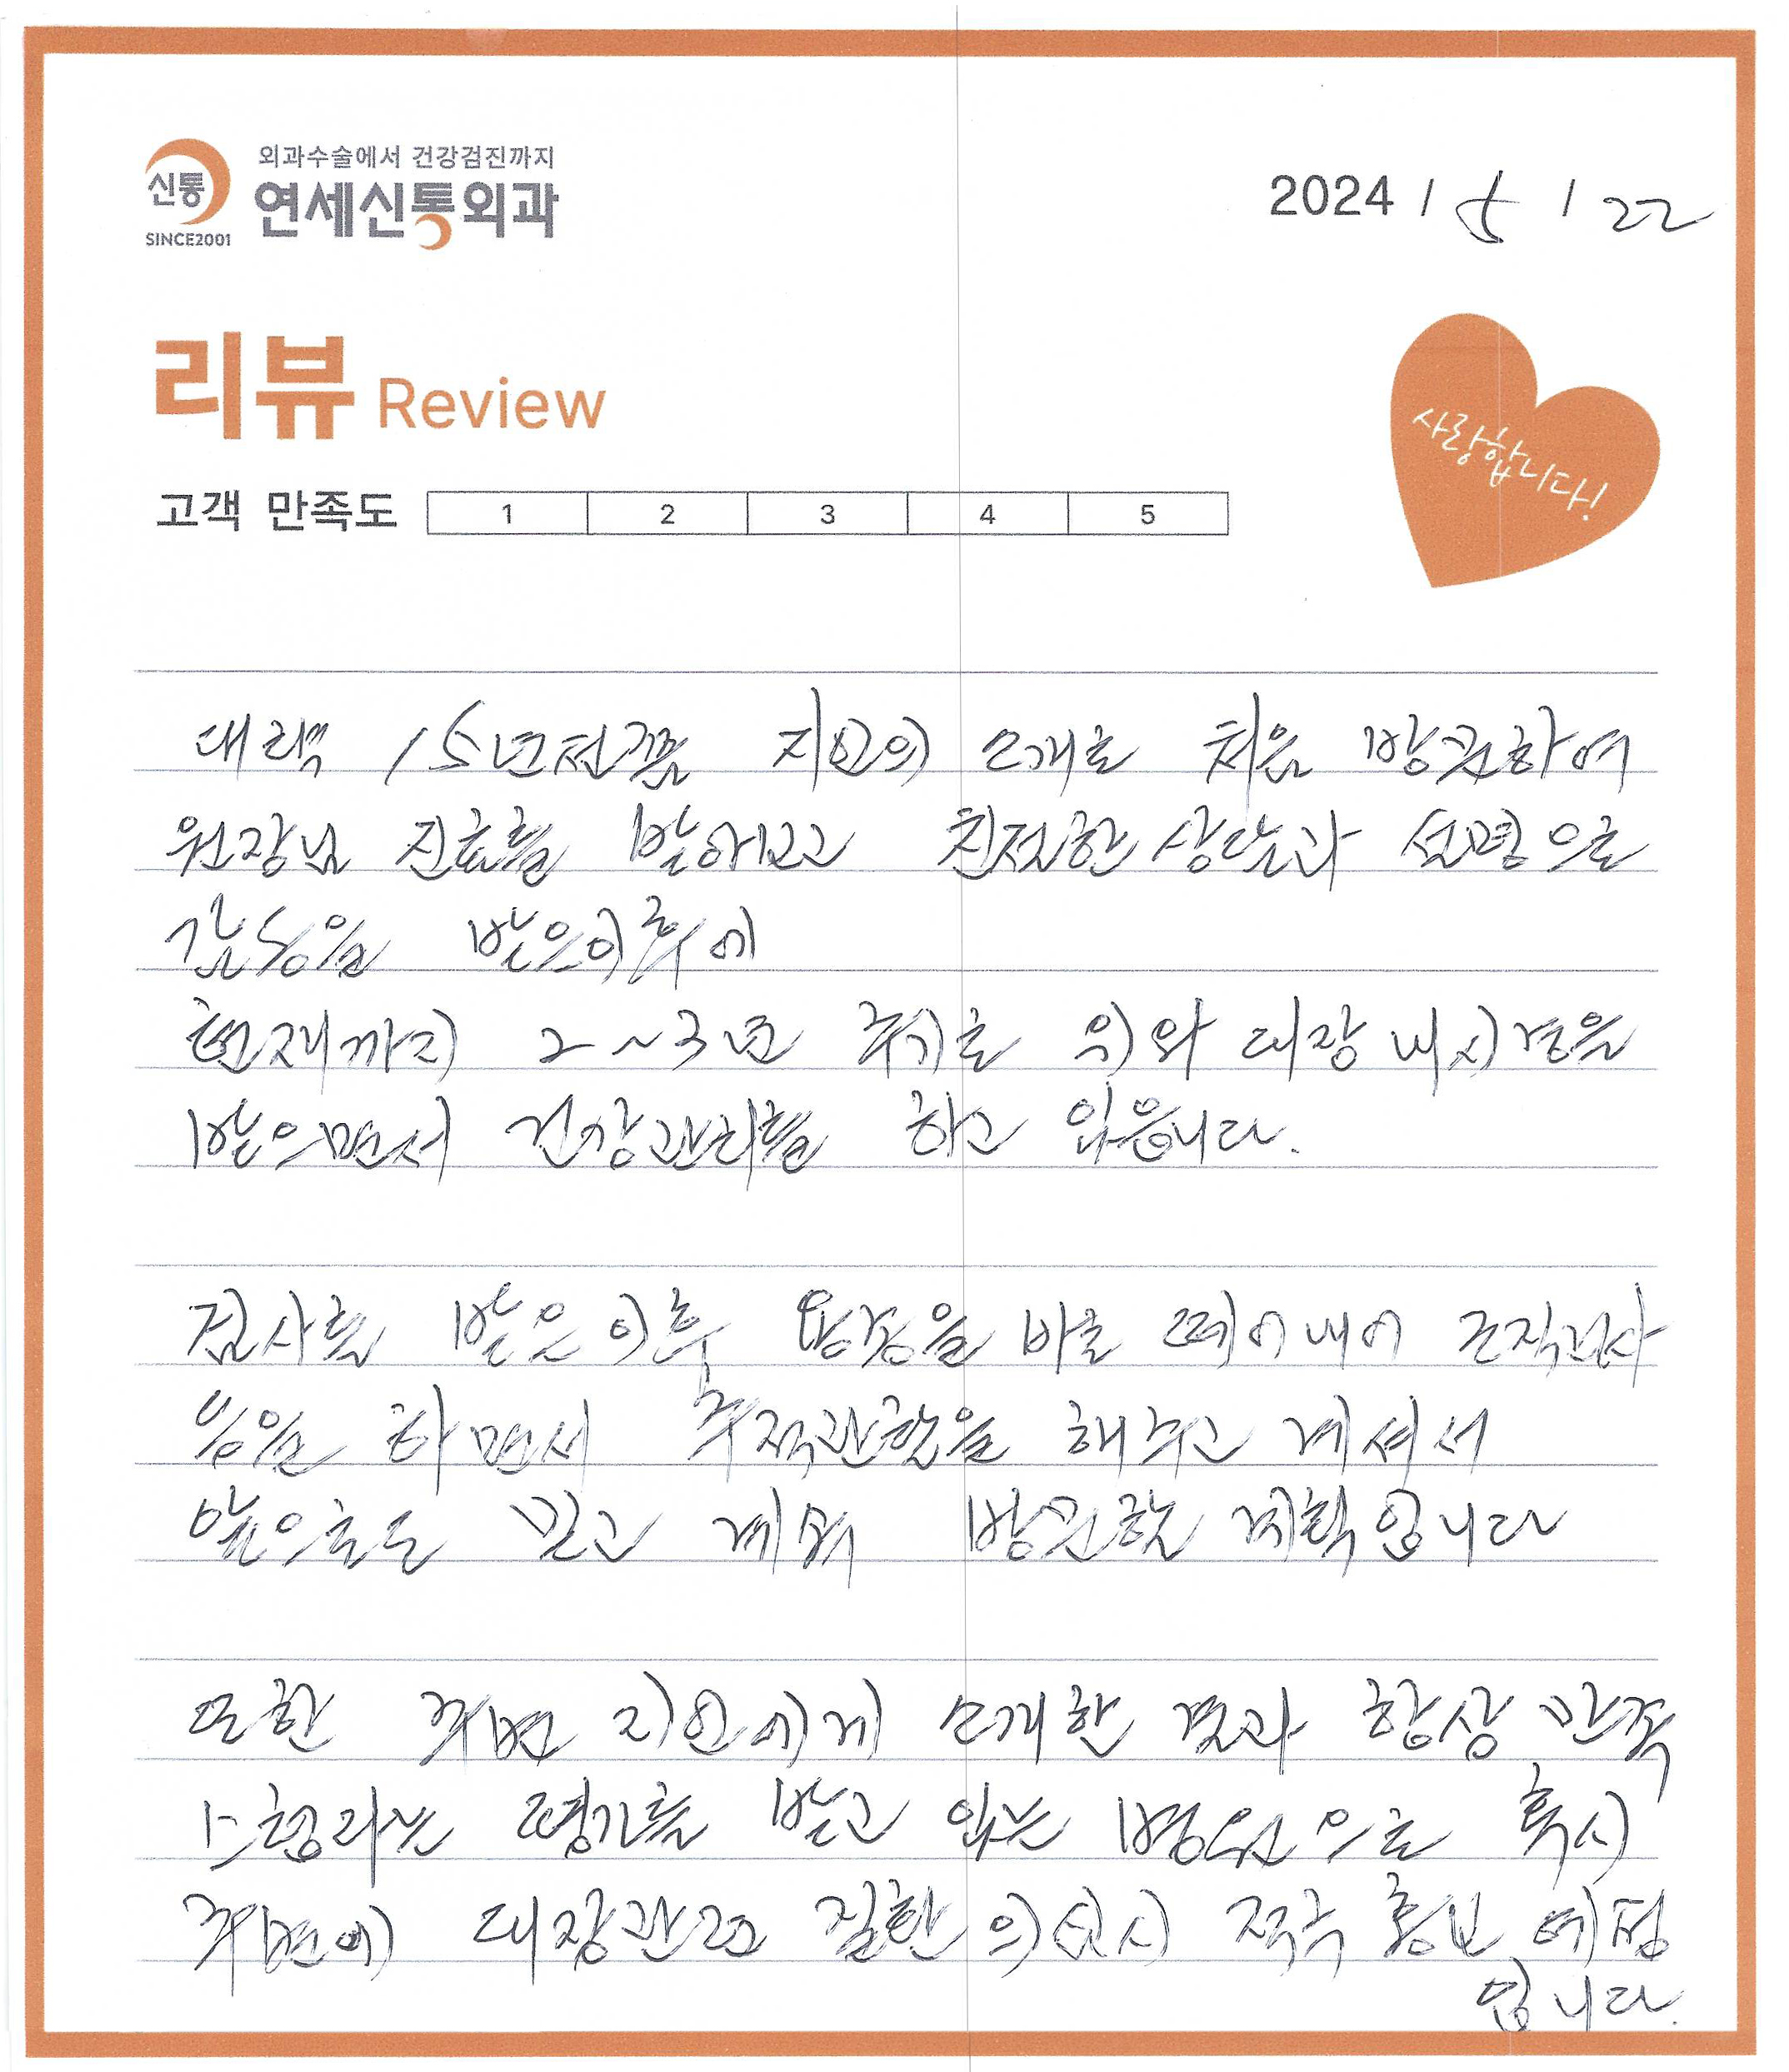 외과수술에서 건강검진까지
신통 연세신통외과
SINCE2001
2024 / 5 / 22
리뷰 Review
사랑합니다!
고객 만족도 1 2 3 4 5
대략 15년전쯤 지인의 소개로 처음 방문하여
원장님 진료를 받아보고 친절한 상담과 설명으로
감동을 받은이후에
현재까지 2~3년 주기로 위와 대장 내시경을
받으면서 건강관리를 하고 있읍니다.
검사를 받은 이후 용종을 바로 떼어내어 조직검사
등을 하면서 추적관찰을 해주고 계셔서
앞으로도 믿고 계속 방문할 계획입니다
또한 주변 지인에게 소개한 결과 항상 만족
스럽다는 평가를 받고 있는 병원으로 혹시
주변에 대장관련 질환 의심시 적극 홍보 예정
입니다.